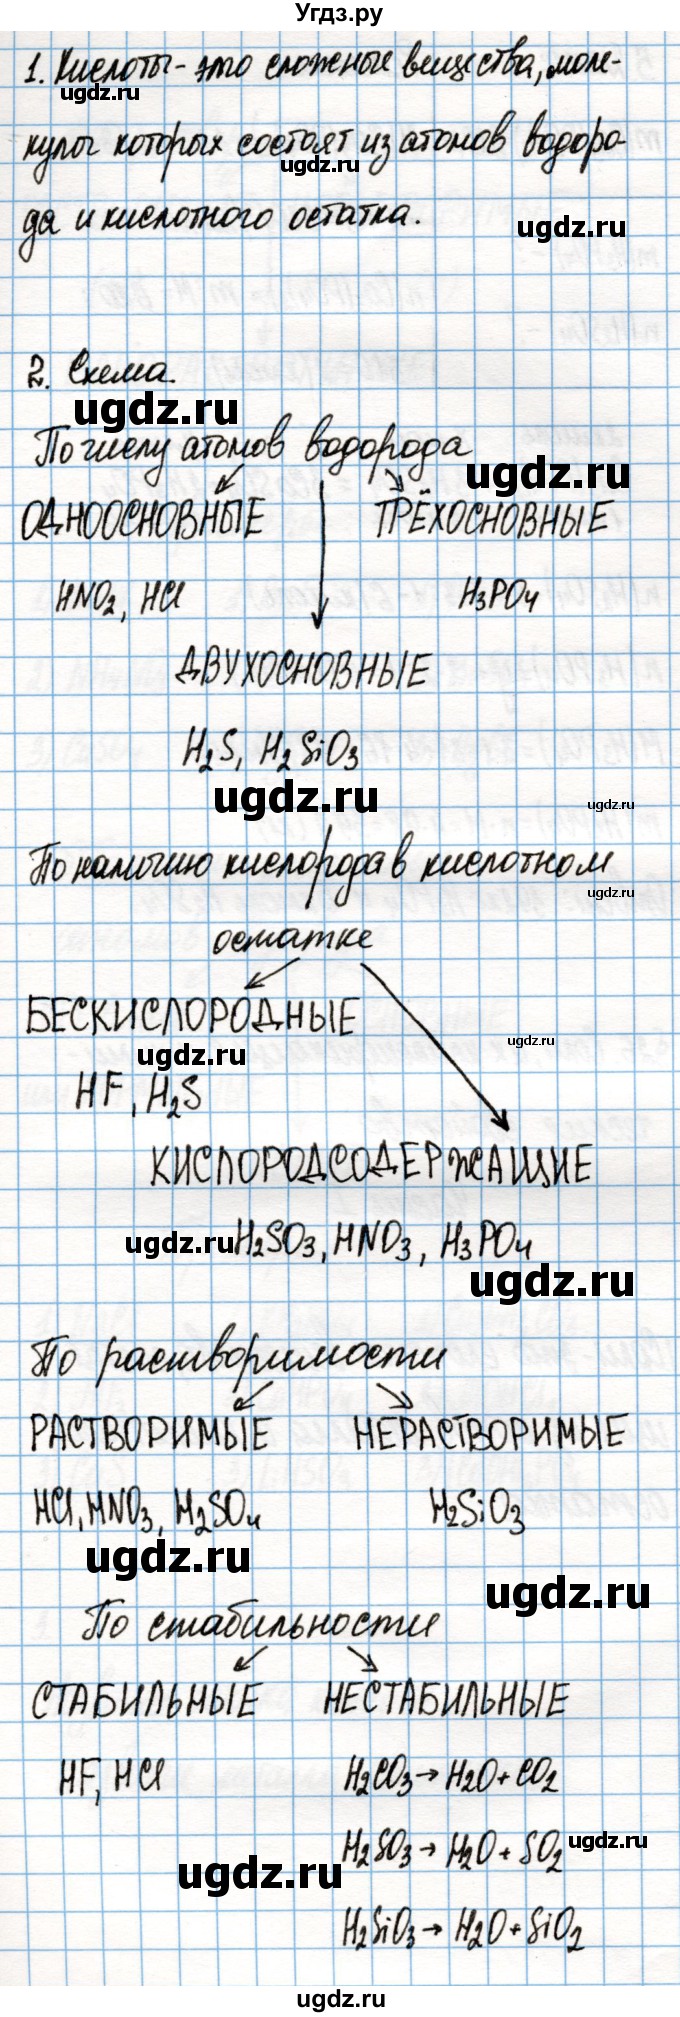 Угдз.ру
1. Кислоты - это сложные вещества, моле-
ugdz.ru
кулы которых состоят из атомов водоро-
ugdz.ru
да и кислотного остатка.
ugdz.ru
2. Схема.
ugdz.ru
По числу атомов водорода
ugdz.ru
ОДНООСНОВНЫЕ ТРЁХОСНОВНЫЕ
HNO2, HCl H3PO4
ugdz.ru
ДВУХОСНОВНЫЕ
H2S, H2SiO3
ugdz.ru ugdz.ru
По наличию кислорода в кислотном
ugdz.ru
остатке
БЕСКИСЛОРОДНЫЕ
ugdz.ru ugdz.ru
HF, H2S
КИСЛОРОДСОДЕРЖАЩИЕ
ugdz.ru H2SO3, HNO3, H3PO4
ugdz.ru
По растворимости
РАСТВОРИМЫЕ НЕРАСТВОРИМЫЕ
HCl, HNO3, H2SO4 H2SiO3
ugdz.ru
ugdz.ru
По стабильности
СТАБИЛЬНЫЕ НЕСТАБИЛЬНЫЕ
HF, HCl H2CO3 → H2O + CO2
ugdz.ru
H2SO3 → H2O + SO2
ugdz.ru
H2SiO3 → H2O + SiO2
ugdz.ru